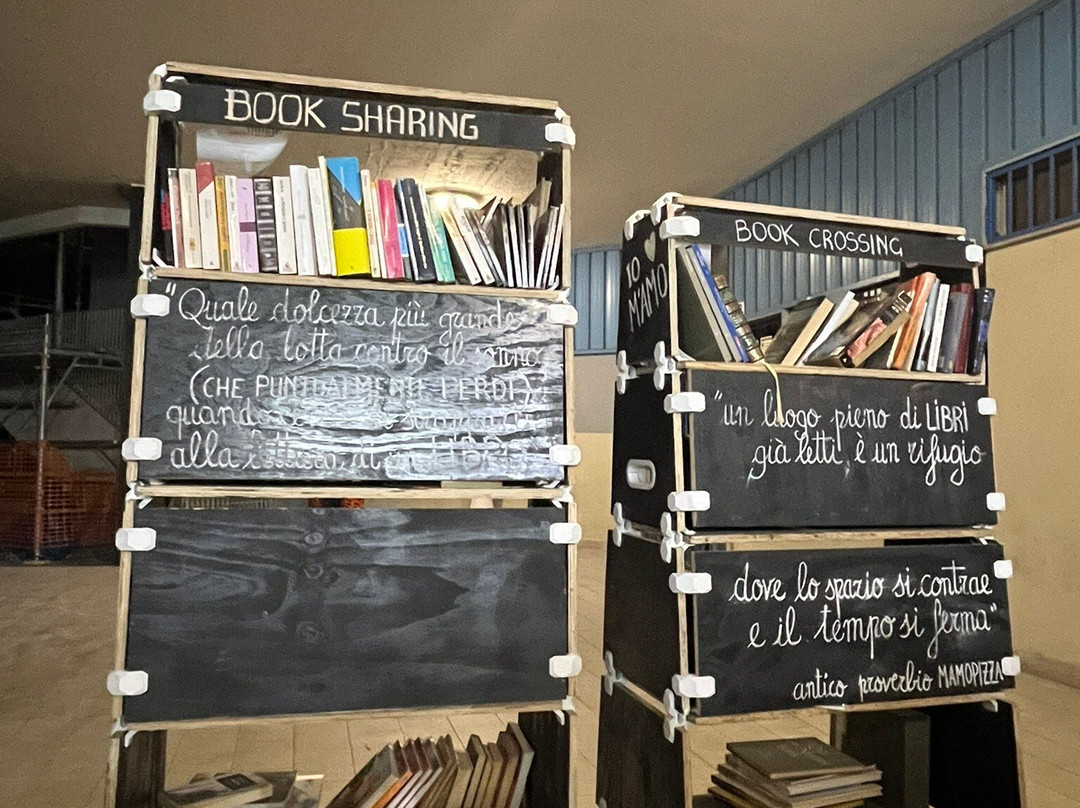 BOOK SHARING
"Quale dolcezza più grande
della lotta contro il sonno
(CHE PUNTUALMENTE PERDI)
quando
alla lettura di un LIBRO
IO
M'AMO
BOOK CROSSING
"un luogo pieno di LIBRI
già letti, è un rifugio
dove lo spazio si contrae
e il tempo si ferma"
antico proverbio MAMOPIZZA